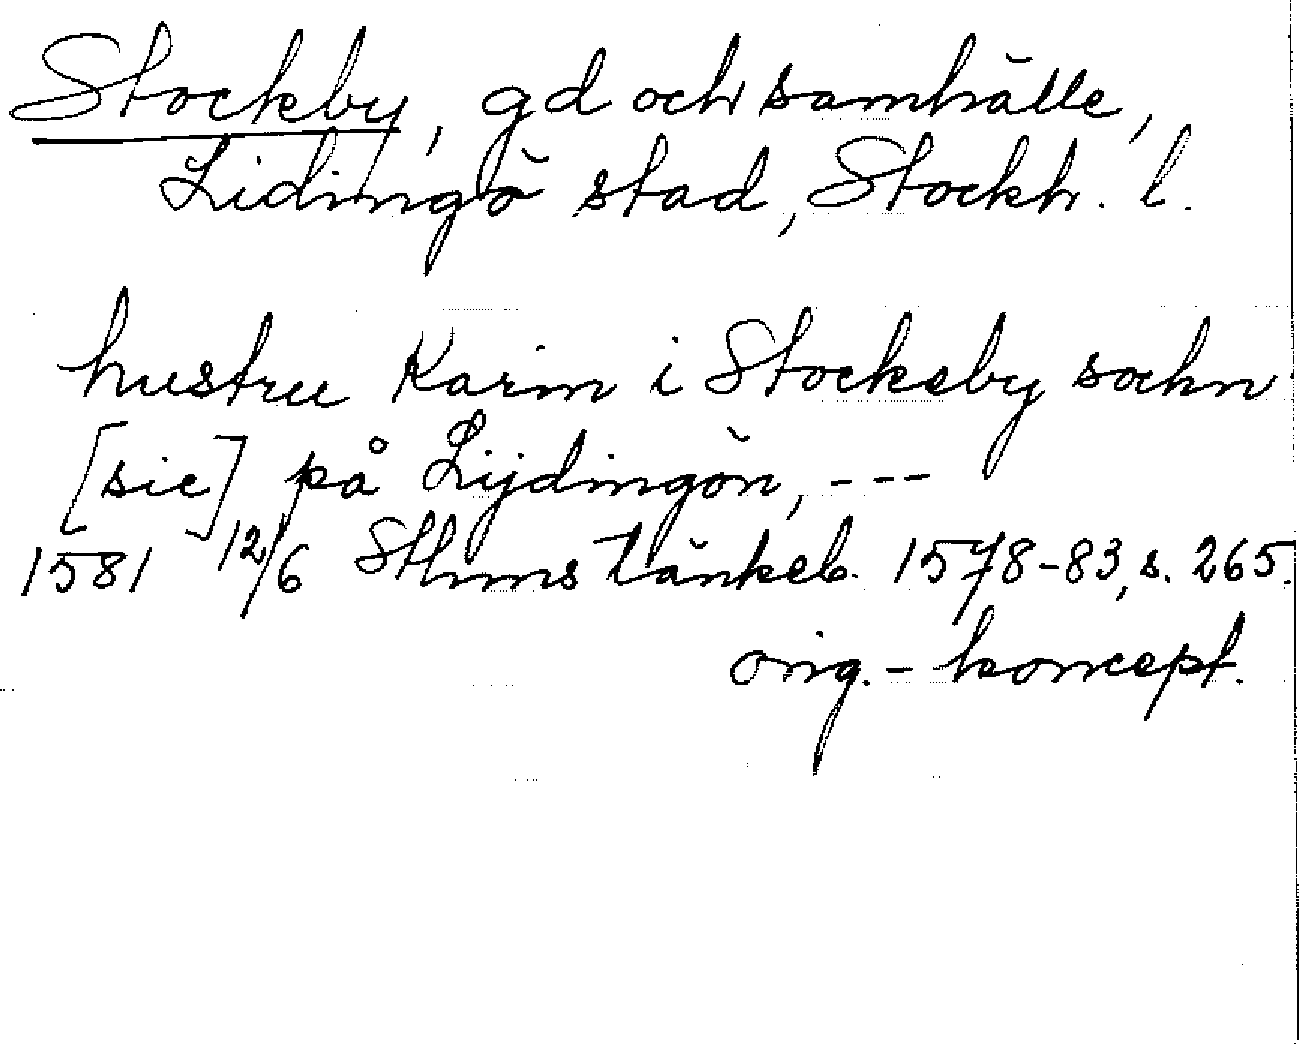 Stockby, gd och samhälle,
Lidingö stad, Stockh. l.
hustru Karin i Stockeby sochn
[sic] på Lijdingön, ---
1581 12/6 Sthms tänkeb. 1578-83, s. 265.
orig.- koncept.